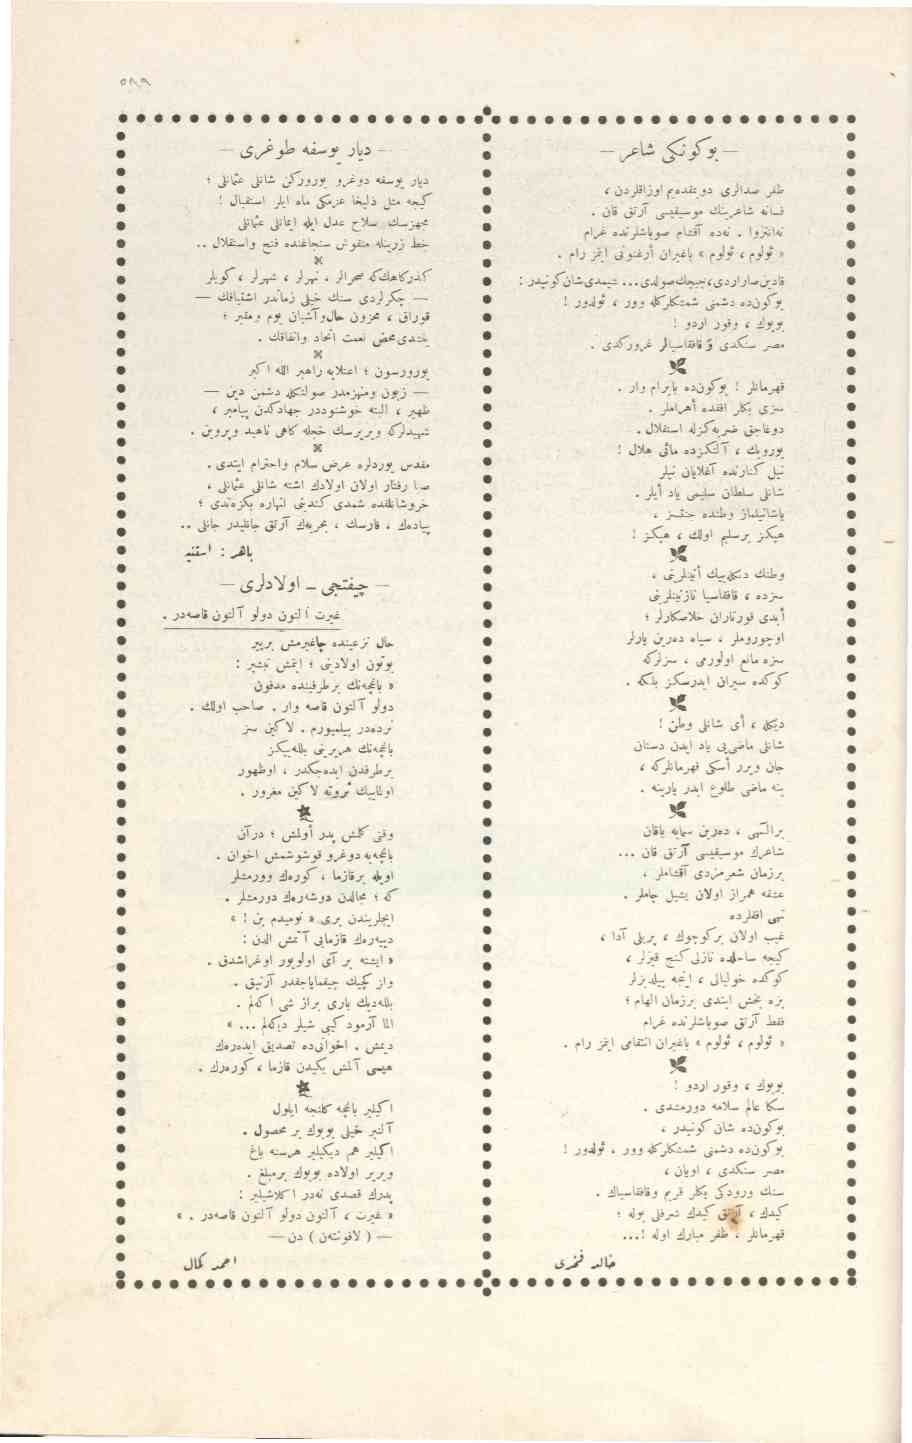 ٥٨٩
— بوكونكی شاعر —
ظفر صدالری دويمقده‌يم اوزاقلردن ،
فسانه شاعرينك موسيقيسی آرتق قان .
نه‌انتزوا . نه‌ده آقشام صوباشلرنده غرام
« ئولوم ، ئولوم » باغيران أرغنونی ايتمز رام .
قادين‌صاراردی،چيچك‌صولدی... شيمدی‌شان‌كونيدر :
بوكون‌ده دشمنی شمشكلركله وور ، ئولدور !
بويوك ، وقور اردو !
مصر سنكدی و قافقاسيالر غروركدی .
قهرمانلر ! بوكون‌ده بايرام وار .
سزی بكلر افقده أهراملر .
دوغاجق ضربه‌كزله استقلال .
يورويك ، آلنكزده مائی هلال !
نيل كنارنده آغلايان نيلر
شانلی سلطان سليمی ياد أيلر .
ياشاتيلماز وطنده جنتسز ،
هپكز برسليم اولك ، هپكز !
وطنك دكله‌ييك أنينلرينی ،
سزده ، قافقاسيا نازنينلرينی
أبدی قورتاران خلاصكارلر ؛
اوچوروملر ، سياه ده‌رين يارلر
سزه مانع اولورمی ، سزلركه
كوكده سيران ايدرسكز بلكه .
ديكله ، أی شانلی وطن !
شانلی ماضی‌يی ياد ايدن دستان
جان ويرر أسكی قهرمانلركه ،
ينه ماضی طلوع ايدر يارينه .
برالٓهی ، ده‌رين سمايه باقان
شاعرك موسيقيسی آرتق قان ...
برزمان شعرمزدی آقشاملر ،
عشقه همراز اولان يشيل چاملر .
تهی افقلرده
غيب اولان بركوچوك ، پريلی آدا ،
كيجه ساحلده نازلی كنج قيزلر ،
كوكده خوليالی ، اينجه ييلديزلر
بزه بخش ايتدی برزمان الهام ؛
فقط آرتق صوباشلرنده غرام
« ئولوم ، ئولوم » باغيران انتقامی ايتمز رام .
بويوك ، وقور اردو !
سكا عالم سلامه دورمشدی .
بوكون‌ده شان كونيدر ،
بوكون‌ده دشمنی شمشكلركله وور ، ئولدور !
مصر سنكدی ، اويان ،
سنك ورودكی بكلر قريم وقافقاسياك .
كيدك ، آرتق كيدك شرفلی يوله ؛
قهرمانلر ، ظفر مبارك اوله !...
خالد فخری
— ديار يوسفه طوغری —
ديار يوسفه دوغرو يوروركن شانلی عثمانلی ؛
كيجه مثل زليخا عزمكی ماه ايلر استقبال !
مجهزسك سلاح عدل ايله ايمانلی عثمانلی
خط زرينله منقوش سنجاغنده فتح واستقلال ..
كذركاهك‌كه صحرالر ، نهرلر ، شهرلر ، كويلر
— چكرلردی سنك خيلی زماندر اشتياقك —
قوراق ، محزون حال‌وآشيان بوم ومقبر ؛
بتندی‌محض نعمت اتحاد واتفاقك .
يورورسون ؛ اعتلايه راهبر الله اكبر
— زبون ومنهزمدر صولتكله دشمن دين —
ظهير ، البته خوشنوددر جهادكدن پيامبر ،
شهيدلركه ويريرسك خجله كاهی ناهيد وپروين .
مقدس يوردلره عرض سلام واحترام ايتدی .
صبا رفتار اولان اولادك اشته شانلی عثمانلی ،
خروشانلقده شمدی كندينی انهاره بكزه‌تدی ؛
پياده‌ك ، فارسك ، بحريه‌ك آرتق جانليدر جانلی ..
باهر : اسقنيه
— چيفتجی ـ اولادلری —
غيرت آلتون دولو آلتون قاصه‌در .
حال نزعينده چاغيرمش برپير
بوتون اولادينی ؛ ايتمش تبشير :
« باغچه‌نك برطرفينده مدفون
دولو آلتون قاصه وار . صاحب اولك .
نرده‌در بيلميورم . لاكين سز
باغچه‌نك هريرينی بلله‌ييكز
برطرفدن ايده‌جكدر ، اوظهور
اولماييك ثروته لاكين مغرور .
وقتی كلمش پدر أولمش ؛ درآن
باغچه‌يه دوغرو قوشوشمش اخوان .
اويله برقازما ، كوره‌ك وورمشلر
كه ؛ مجالدن دوشه‌رك دورمشلر .
ايچلريندن بری « نوميدم بن ! »
دييه‌رك قازمايی آتمش الدن :
« ايشته بر آی اولويور اوغراشدق .
واز كچيك چيقماياجقدر آرتيق .
بلله‌ديك باری براز شی اكه‌لم .
الما آرمود كبی شيلر ديكه‌لم ... »
ديمش . اخوانی‌ده تصديق ايده‌ره‌ك
هپسی آلمش يكيدن قازما ، كوره‌رك .
اكيلير باغچه كلنجه ايلول
آلنير خيلی بويوك بر محصول .
اكيلير هم ديكيلير هرسنه باغ
ويرير اولاده بويوك برمبلغ .
پدرك قصدی نه‌در اكلاشيلير :
« غيرت ، آلتون دولو آلتون قاصه‌در . »
— ( لافونته‌ن ) دن —
احمد كمال